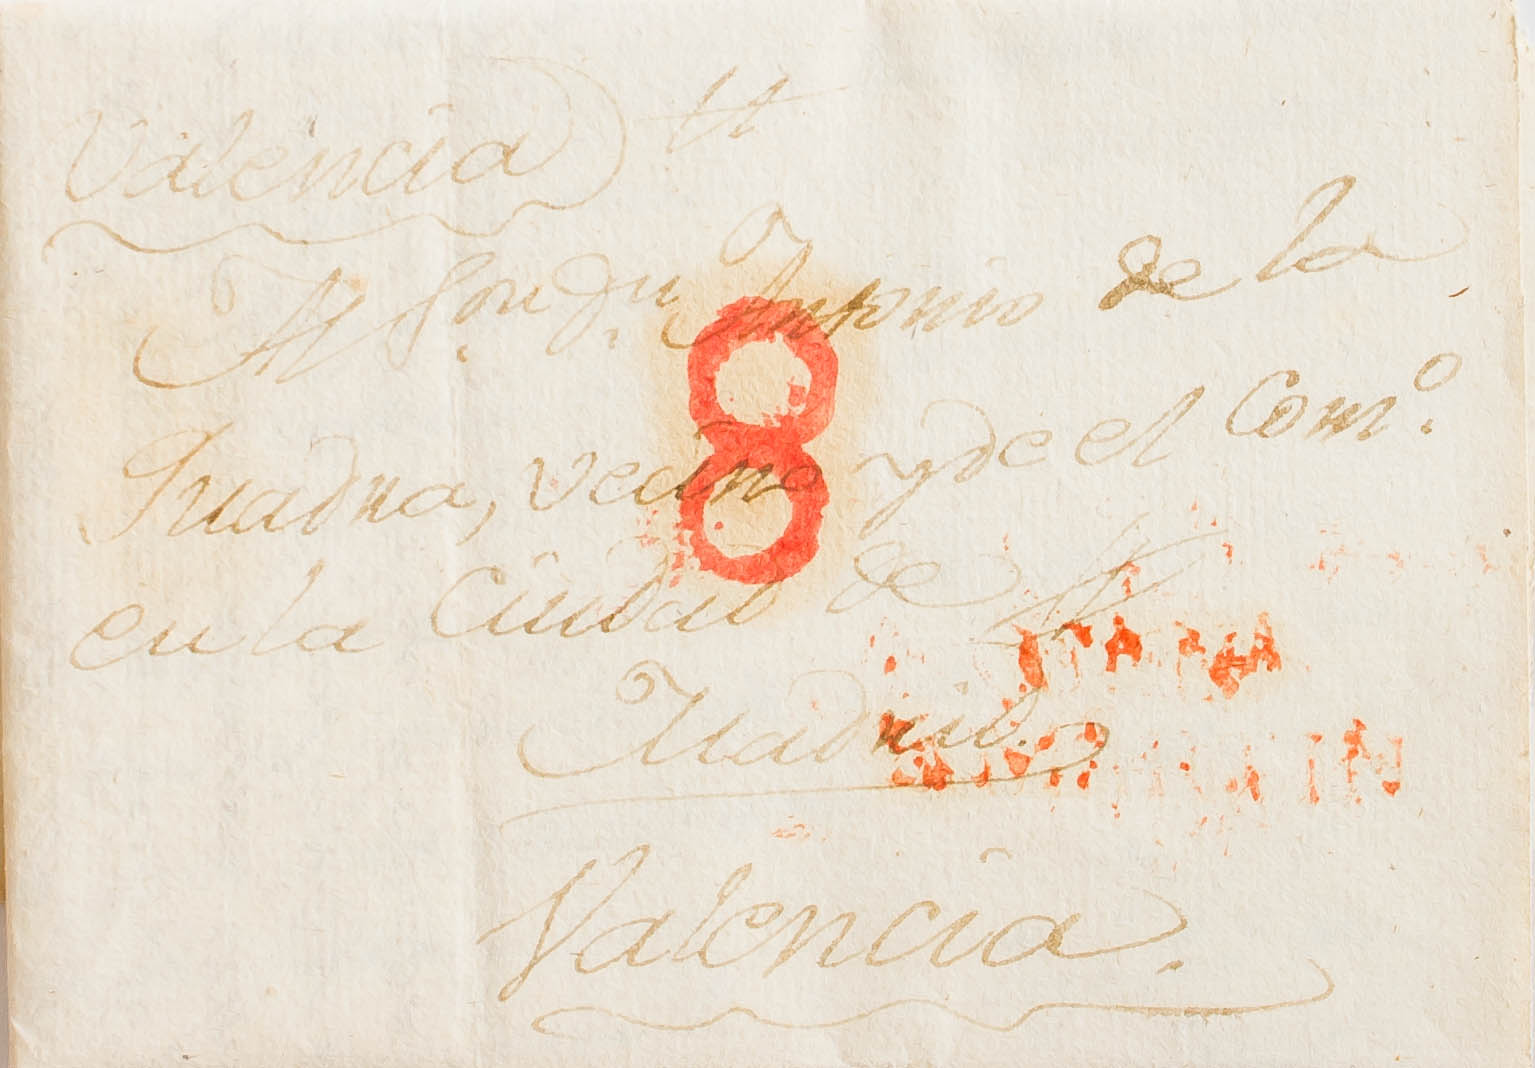 Valencia
Al Sor. Dn. Antonio de la
Quadra, vecino y de el Como.
en la Ciudad de
Madrid.
Valencia.
8